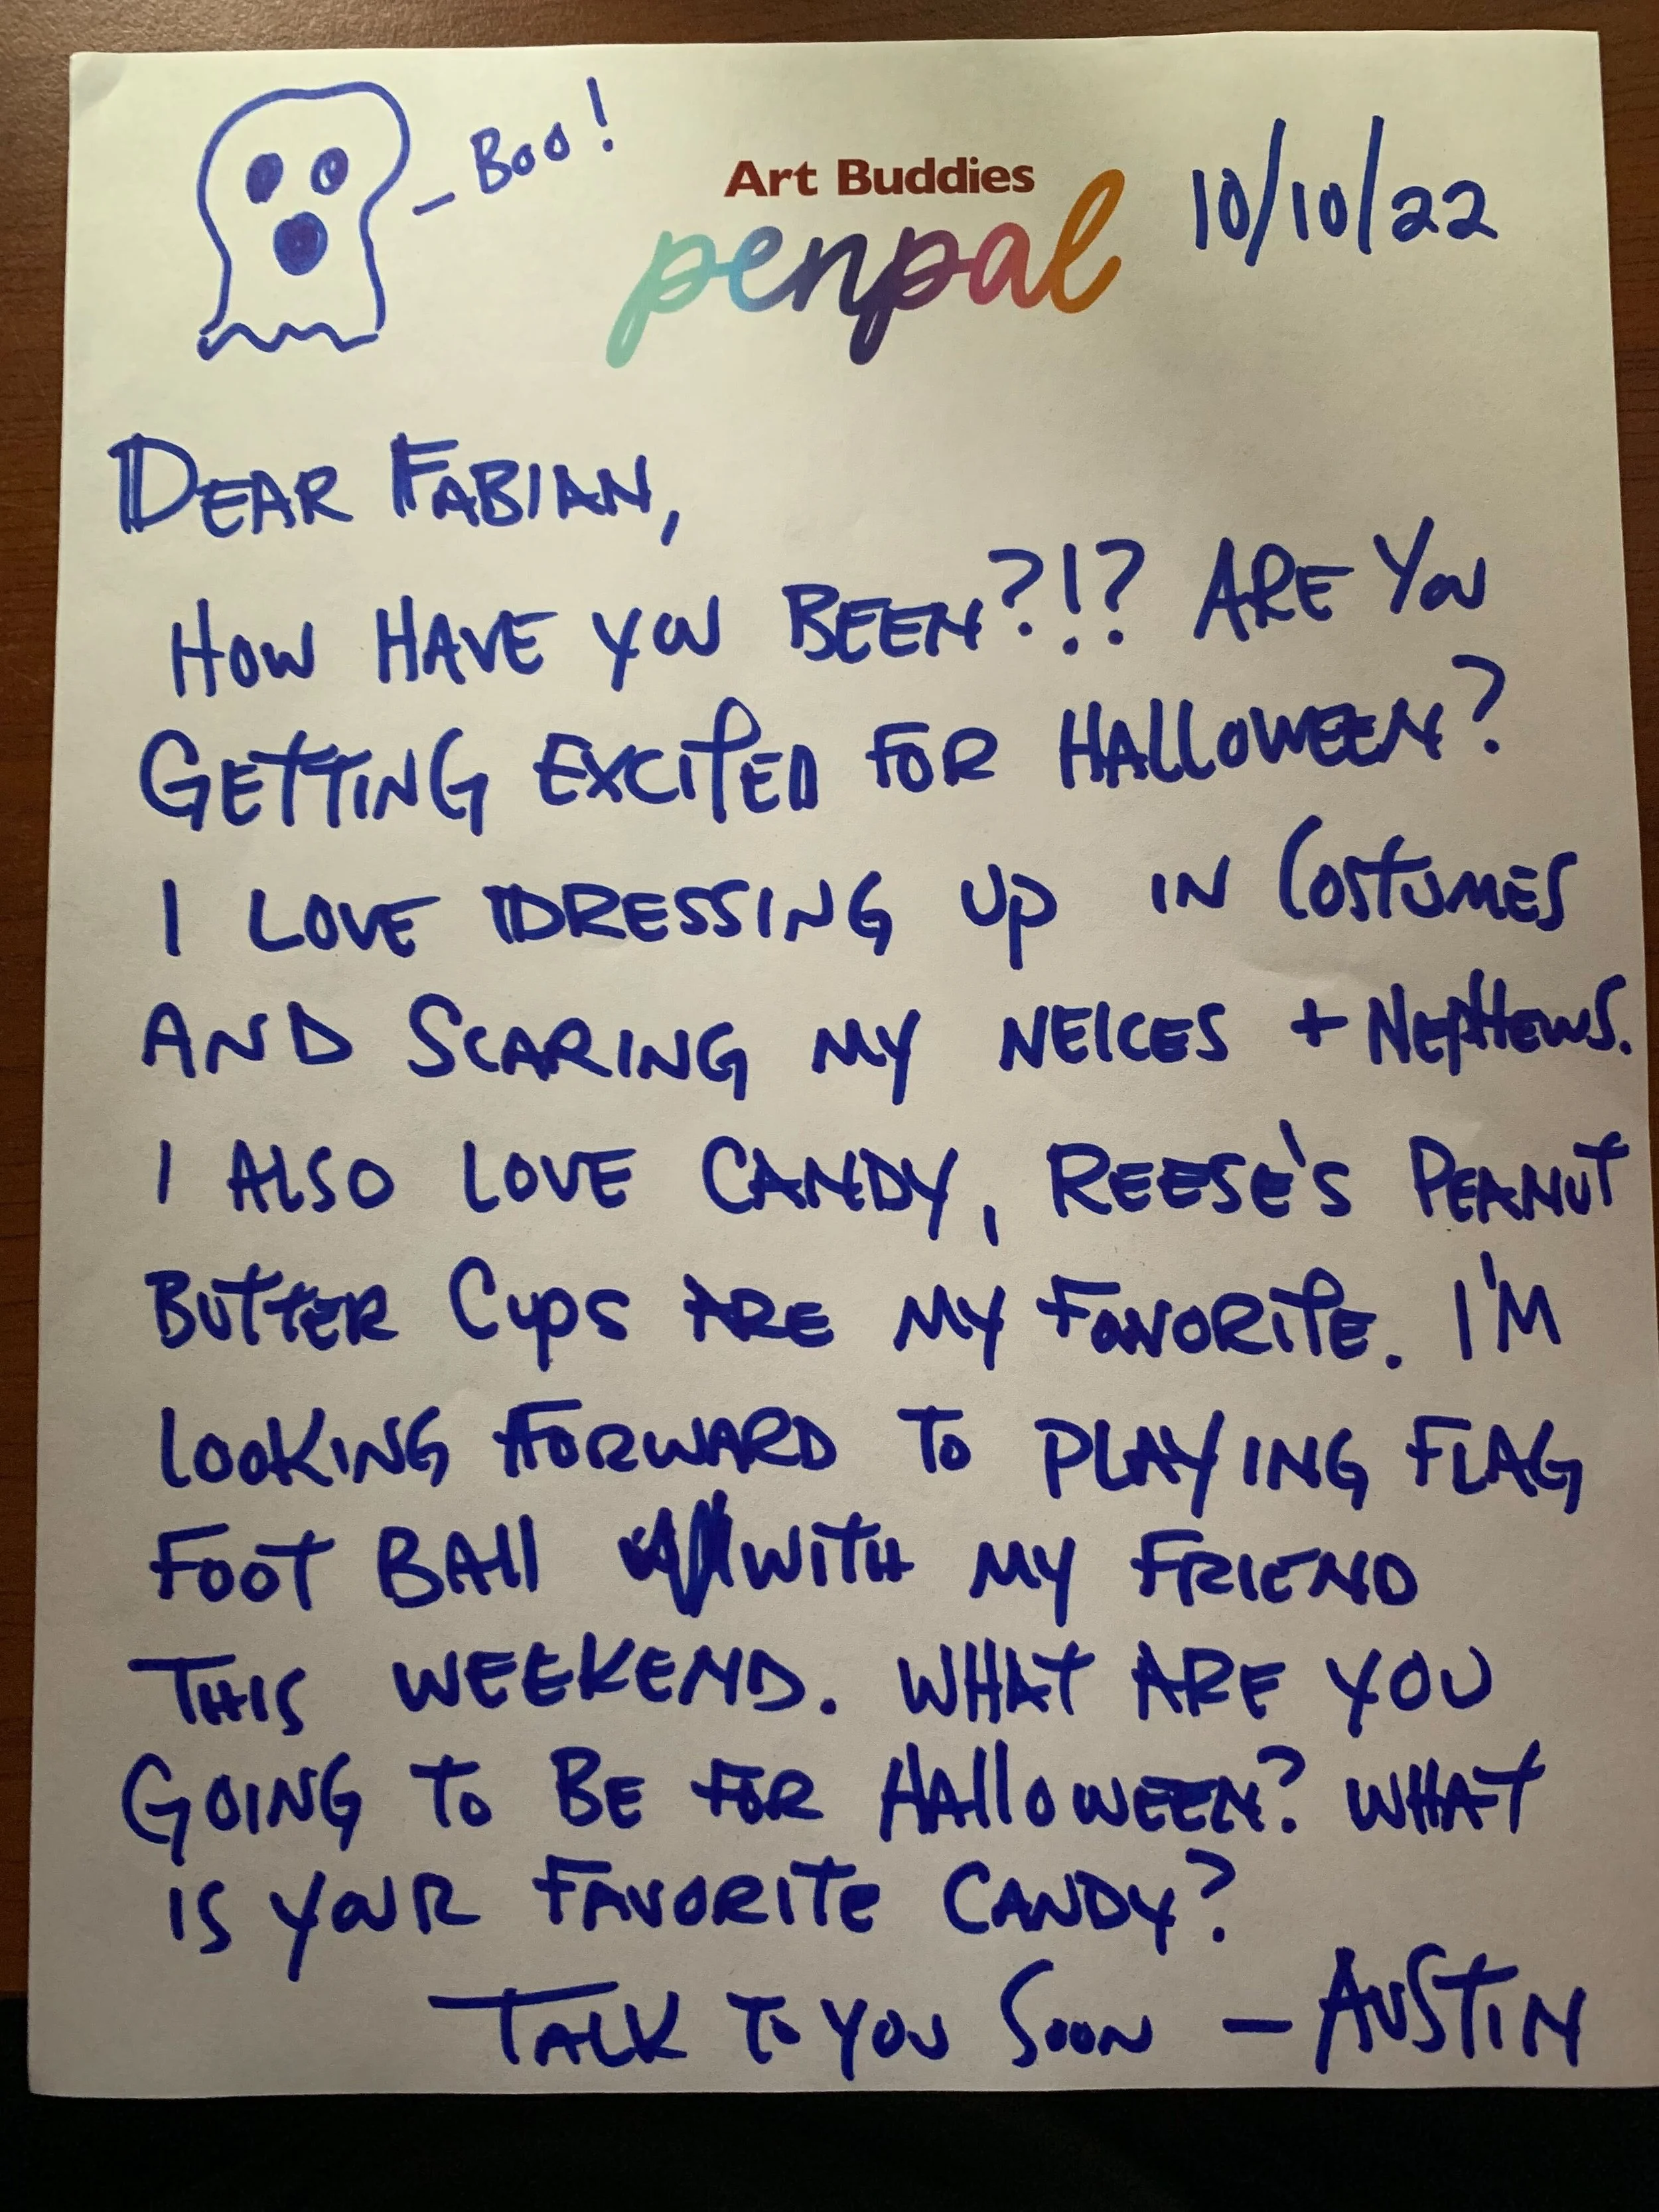 - Boo!
Art Buddies
penpal
10/10/22
DEAR FABIAN,
HOW HAVE YOU BEEN?!? ARE YOU
GETTING EXCITED FOR HALLOWEEN?
I LOVE DRESSING UP IN COSTUMES
AND SCARING MY NEICES + NEPHEWS.
I ALSO LOVE CANDY, REESE'S PEANUT
BUTTER CUPS ARE MY FAVORITE. I'M
LOOKING FORWARD TO PLAYING FLAG
FOOT BALL WITH MY FRIEND
THIS WEEKEND. WHAT ARE YOU
GOING TO BE FOR HALLOWEEN? WHAT
IS YOUR FAVORITE CANDY?
TALK TO YOU SOON - AUSTIN